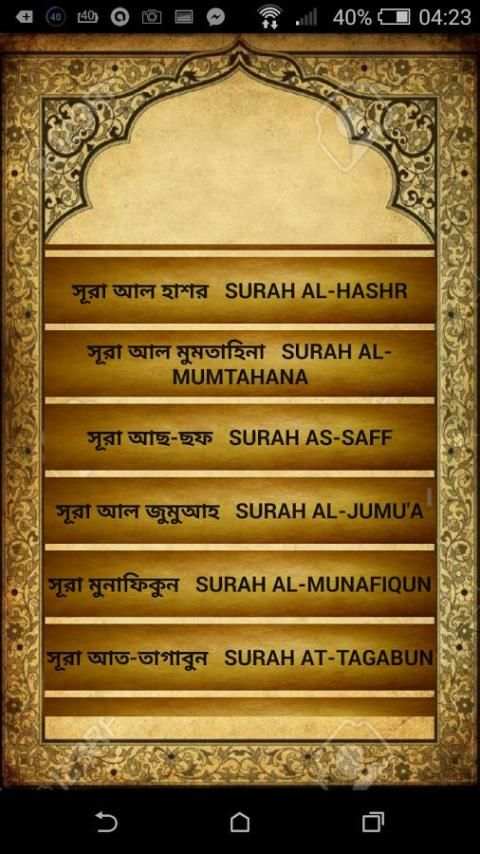 40% 04:23
সূরা আল হাশর SURAH AL-HASHR
সূরা আল মুমতাহিনা SURAH AL-
MUMTAHANA
সূরা আছ-ছফ SURAH AS-SAFF
সূরা আল জুমুআহ SURAH AL-JUMU'A
সূরা মুনাফিকুন SURAH AL-MUNAFIQUN
সূরা আত-তাগাবুন SURAH AT-TAGABUN